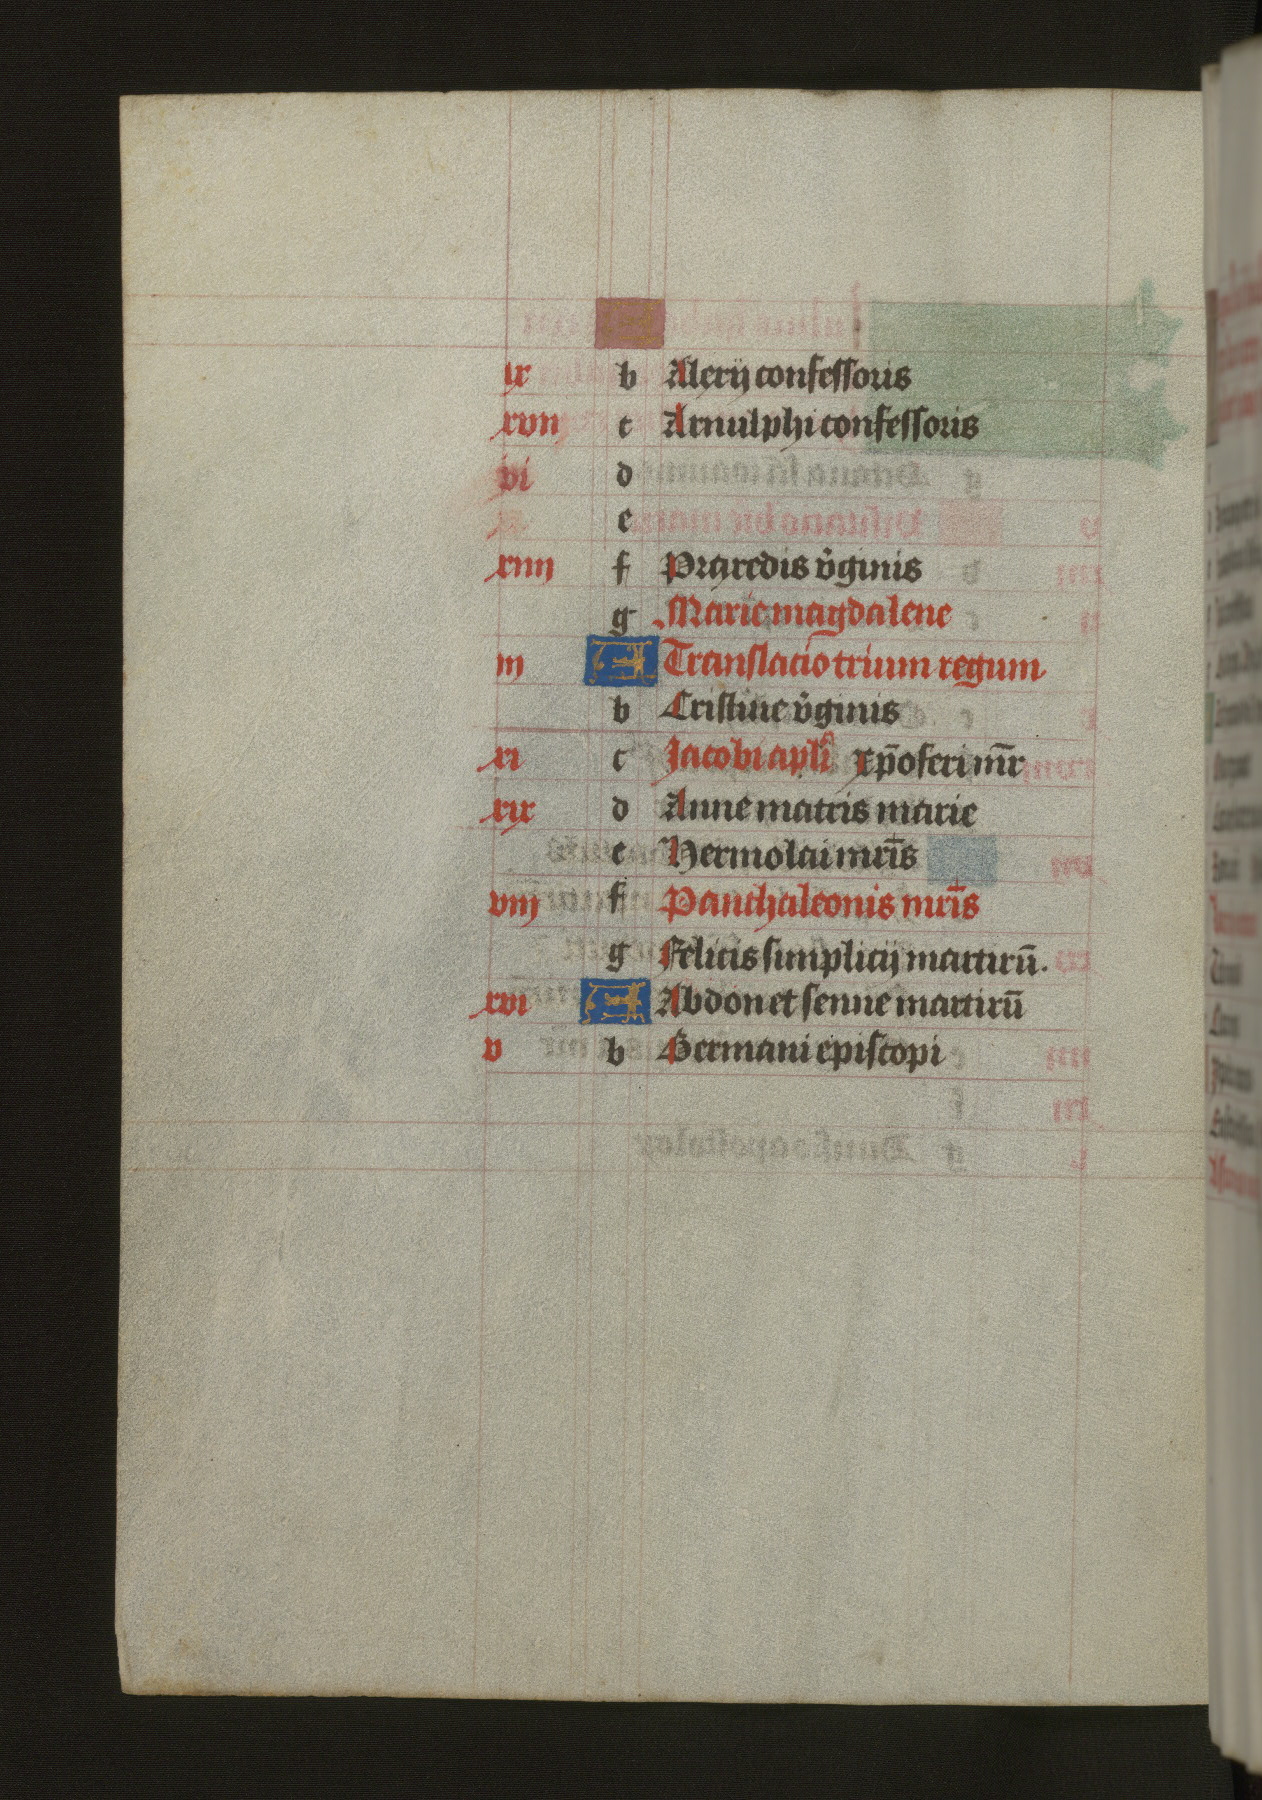 A
ix b Alexij confessoris
xvij c Arnulphi confessoris
vi d
e
xiiij f Praxedis v̄ginis
g Marie magdalene
iij A Translacio trium regum
b Cristine v̄ginis
xi c Jacobi apl̄i xp̄oferi mr̄
xix d Anne matris marie
e Hermolai mr̄is
viij f Panthaleonis mr̄is
g Felicis simplicij martirū.
xvi A Abdon et senne martirū
v b Germani episcopi